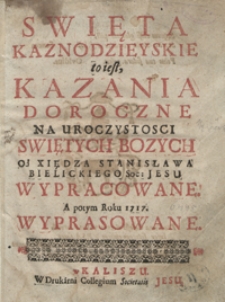 SWIĘTA
KAZNODZIEYSKIE
to iest,
KAZANIA
DOROCZNE
NA UROCZYSTOSCI
SWIĘTYCH BOZYCH
OJ XIĘDZA STANISŁAWA
BIELICKIEGO Soc: JESU
WYPRACOWANE,
A potym Roku 1717.
WYPRASOWANE.
w KALISZU
W Drukárni Collegium Societatis JESU